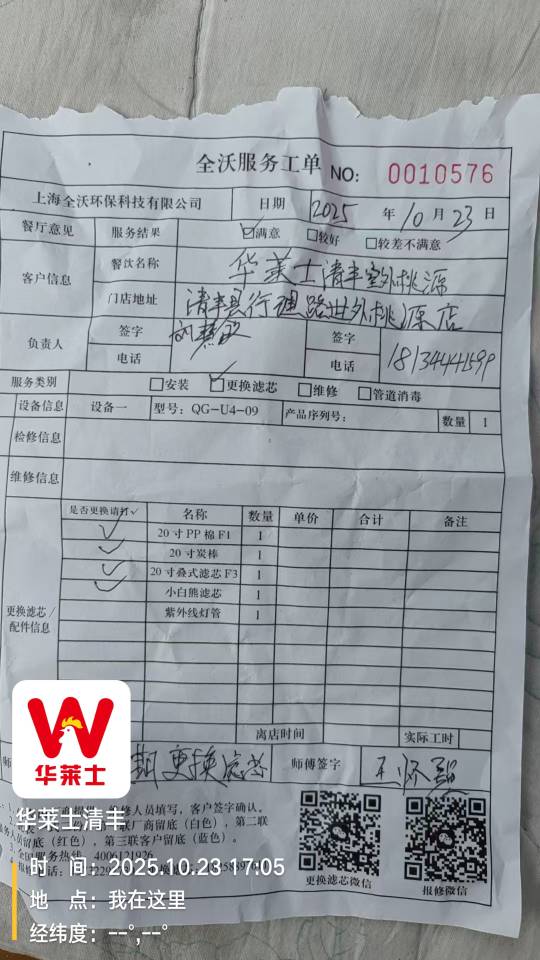 全沃服务工单 NO: 0010576
上海全沃环保科技有限公司 日期 2025 年 10 月 23 日
餐厅意见 服务结果 ☑满意 □较好 □较差不满意
客户信息 餐饮名称 华莱士清丰世外桃源
门店地址 清丰县行政路世外桃源店
负责人 签字 签字
电话 电话 18134441599
服务类别 □安装 ☑更换滤芯 □维修 □管道消毒
设备信息 设备一 型号: QG-U4-09 产品序列号: 数量 1
检修信息
维修信息
更换滤芯/配件信息 是否更换请打√ 名称 数量 单价 合计 备注
√ 20寸PP棉F1 1
√ 20寸炭棒 1
√ 20寸叠式滤芯F3 1
√ 小白熊滤芯 1
紫外线灯管 1
离店时间 实际工时
期更换滤芯 师傅签字
维修人员填写，客户签字确认。
联厂商留底（白色），第二联
留底（红色），第三联客户留底（蓝色）。
全国服务热线: 4006121926
更换滤芯微信 报修微信
华莱士
华莱士清丰
时 间: 2025.10.23 17:05
地 点: 我在这里
经纬度: --°,--°